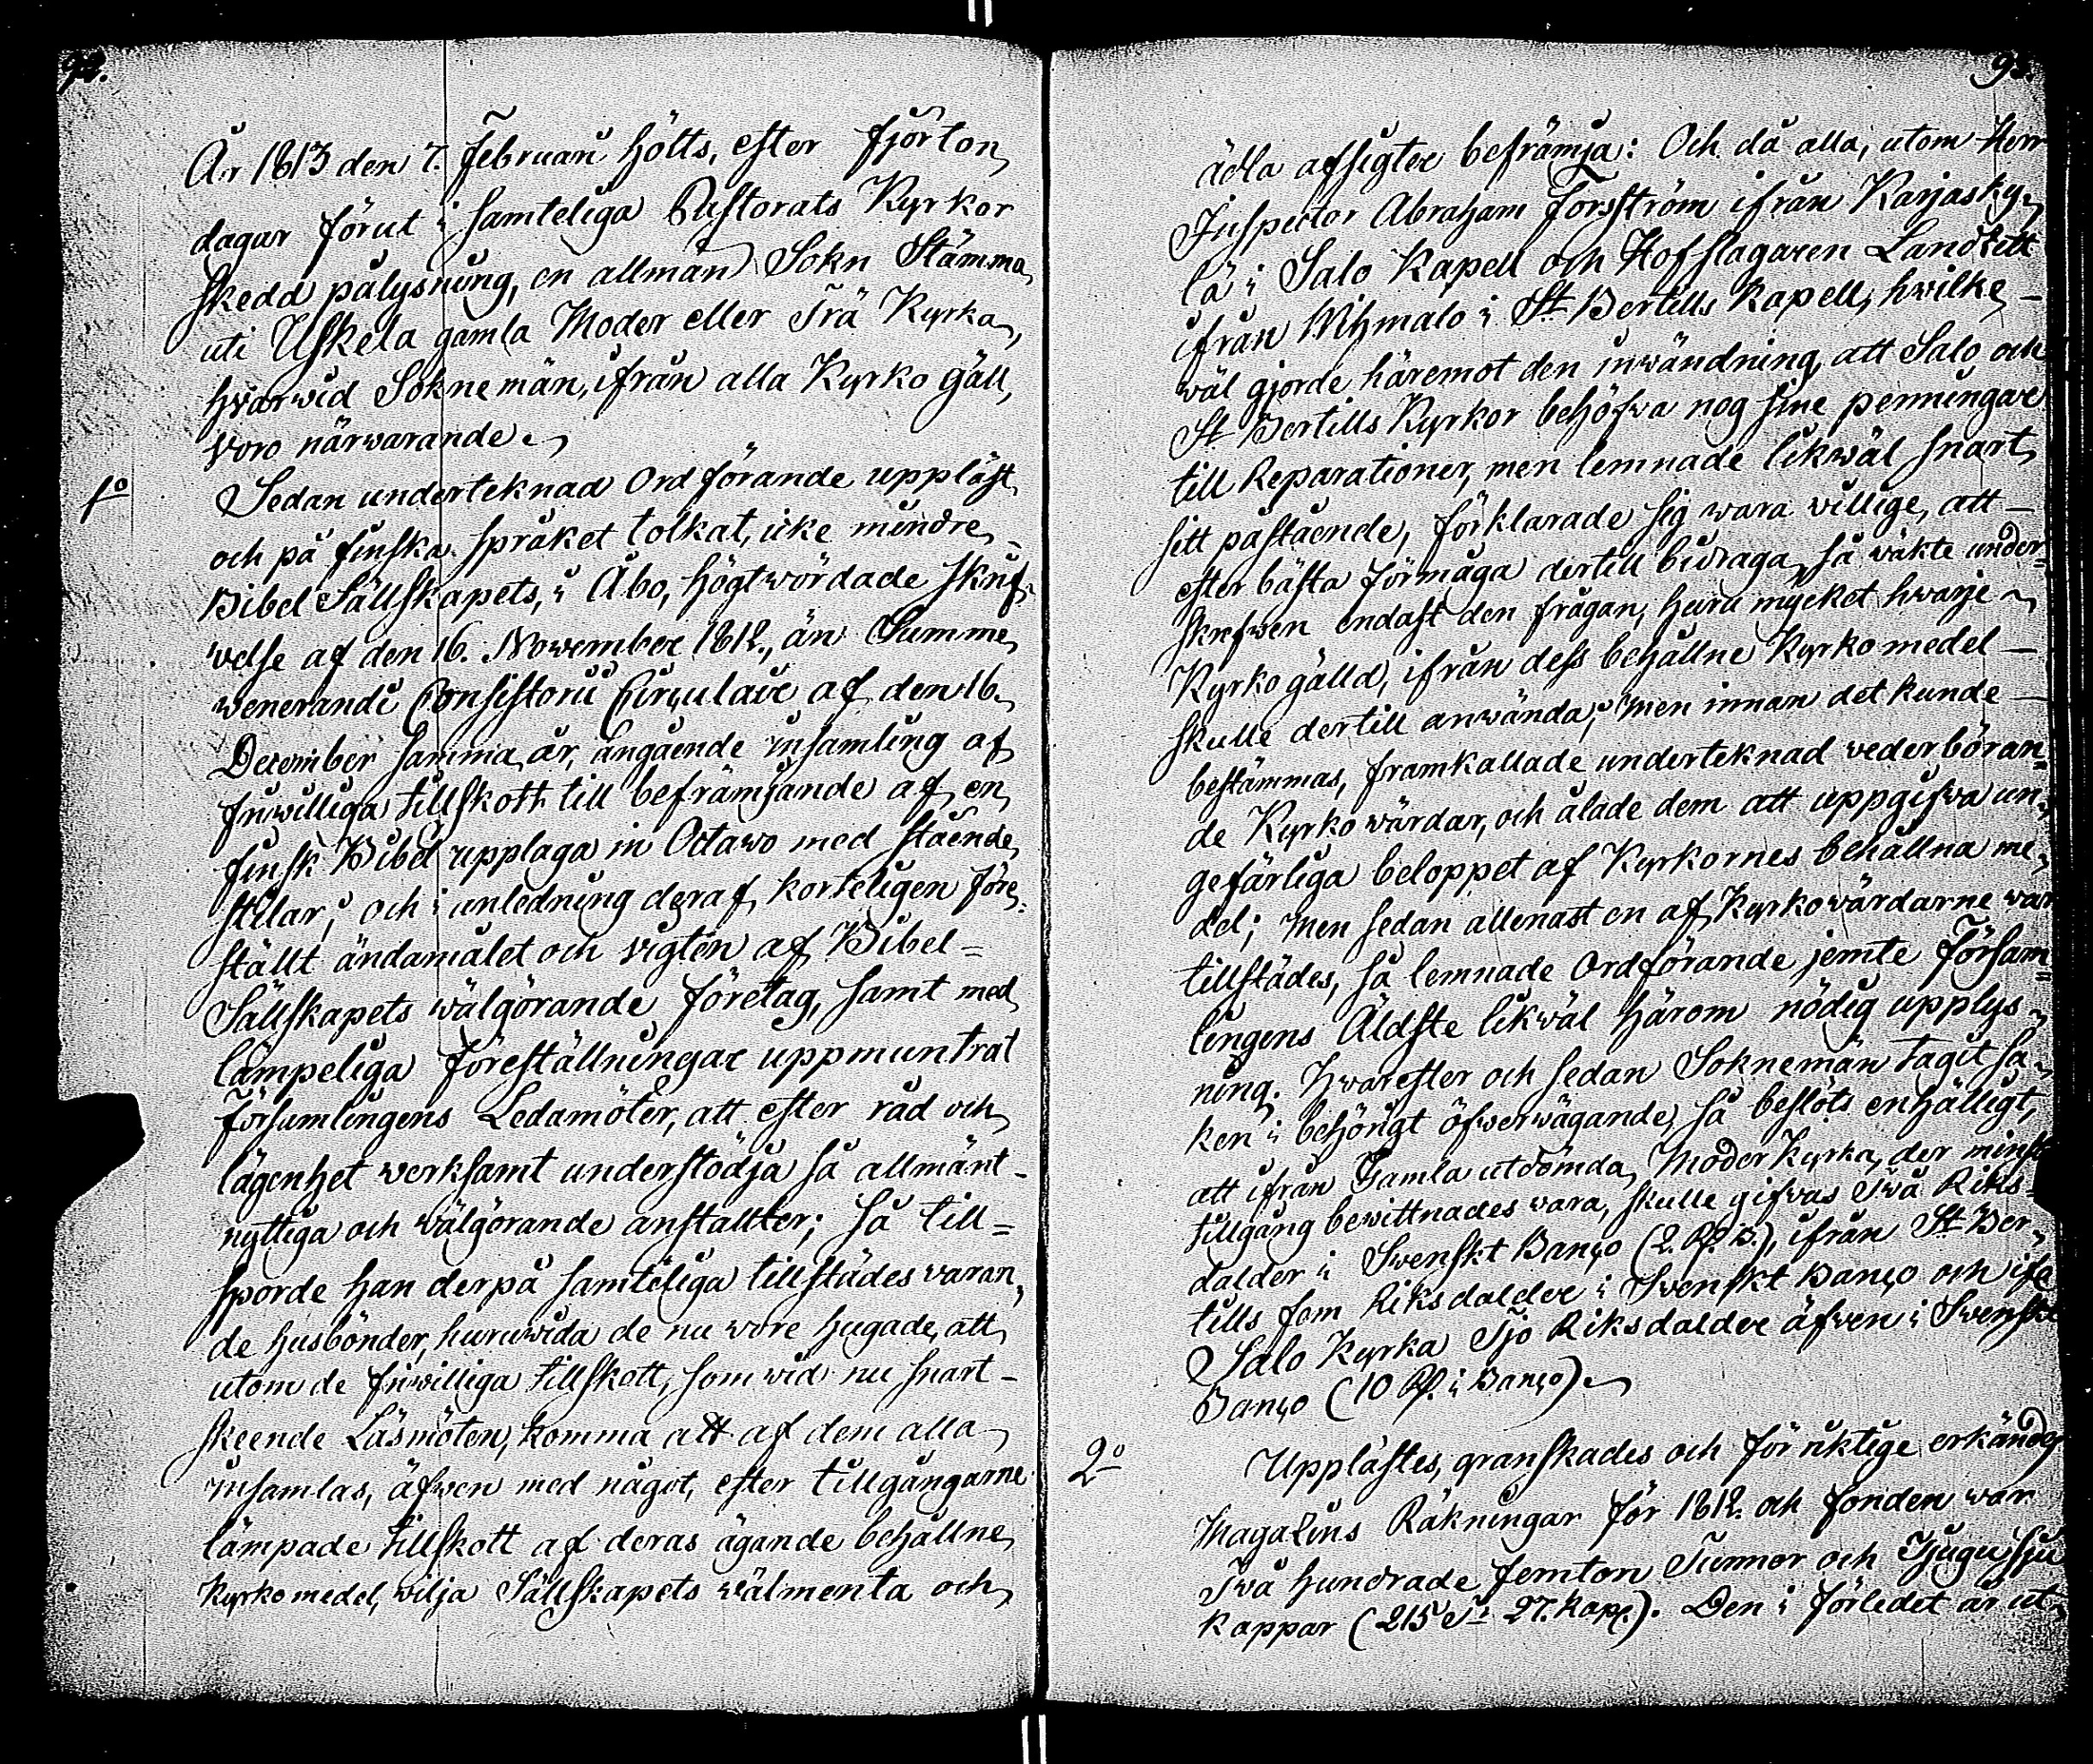 92.
År 1813 den 7. Februarii hölts, efter fjorton
dagar förut i samteliga Pastorats Kyrkor
skedd pålysning, en allmän Sokn Stämma
uti Uskela gamla Moder eller Trä Kyrka,
hvarwid Soknemän, ifrån alla Kyrko gäll,
voro närwarande.
1o Sedan underteknad Ordförande uppläst
och på finska språket tolkat, icke mindre
Bibel Sällskapets, i Åbo, högtwördade skrif-
velse af den 16. November 1812., än Summe
venerandi Consistorii Circulaire af den 16.
December samma år, angående insamling af
friwilliga tillskott till befrämjande af en
finsk Bibel upplaga in Octavo med stående
stilar; och i anledning deraf korteligen före-
ställt ändamålet och vigten af Bibel-
Sällskapets wälgörande företag, samt med
lämpeliga föreställningar uppmuntrat
församlingens Ledamöter, att efter råd och
lägenhet verksamt understödja så allmänt-
nyttiga och wälgörande anstalter; så till-
sporde han derpå samteliga tillstädes varan-
de husbönder, huruwida de nu wore hugade, att
utom de friwilliga tillskott, som wid nu snart-
skeende Läsmöten, komma att af dem alla
insamlas, äfwen med något, efter tillgångarne
lämpade tillskott af deras ägande behållne
kyrkomedel, wilja Sällskapets wälmenta och
93.
ädla afsigter befrämja: Och då alla, utom Herr
Inspector Abraham Forsström ifrån Karjasky-
lä i Salo Kapell och Hofslagaren Landtett
ifrån Wihmalo i St Bertills Kapell, hwilke-
wäl gjorde häremot den inwändning, att Salo och
St Bertills Kyrkor behöfwa nog sine penningar
till Reparationer, men lemnade likwäl snart
sitt påstående, förklarade sig wara villige, att-
efter bästa förmåga dertill bidraga, så väkte under-
skrefwen endast den frågan, huru mycket hwarje
Kyrkogälld, ifrån dess behållne Kyrkomedel-
skulle dertill anwända; Men innan det kunde-
bestämmas, framkallade underteknad vederböran-
de Kyrkowärdar, och ålade dem att uppgifwa un-
gefärliga beloppet af Kyrkornes behållna me-
del; Men sedan allenast en af Kyrkowärdarne war
tillstädes, så lemnade Ordförande jemte Försam-
lingens Äldste likwäl härom nödig upplys-
ning. Hwarefter och sedan Soknemän tagit sa-
ken i behörigt öfwerwägande, så beslöts enhälligt,
att ifrån Gamla utdömda Moder Kyrka, der minsta
tillgång bewittnades wara, skulle gifwas Twå Riks-
dalder i Swenskt Banco (2. Rd. B.), ifrån St Ber-
tills fem Riksdalder i Swenskt Banco och ifr
Salo Kyrka Tjo Riksdalder äfwen i Swenskt
Banco (10 Rd. i Banco).
2o Upplästes, granskades och för riktige erkändes
Magazins Räkningar för 1812. och fonden war
Twå hundrade femton Tunnor och Tjugusju
kappar (215 Tr 27. kapp.). Den i förledet år ut-